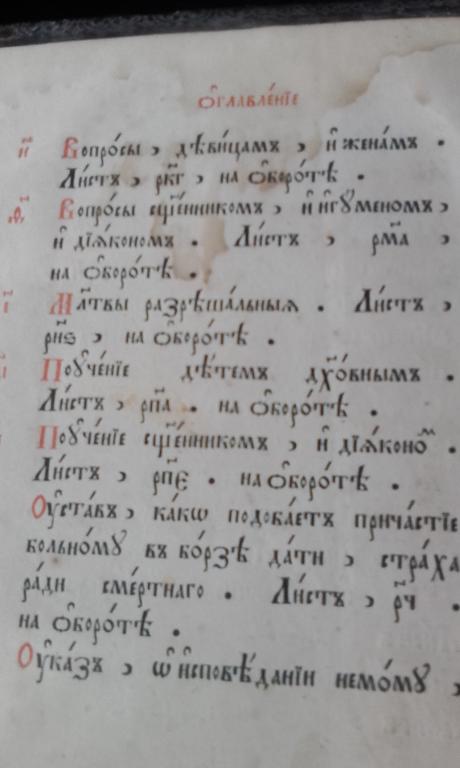 Ѻ҆главле́нїе
и҃ Вопро́сы , дѣви́цамъ , и҆ жена́мъ .
Ли́стъ , рк҃г , на ѻ҆боро́тѣ .
ѳ҃ Вопро́сы сщ҃е́нникомъ , и҆ и҆гꙋ́меномъ ,
и҆ дїѧ́кономъ . Ли́стъ , рм҃а ,
на ѻ҆боро́тѣ .
і҃ Мл҃твы разрѣша́льныѧ . Ли́стъ ,
рн҃ѕ , на ѻ҆боро́тѣ .
Поꙋче́нїе дѣ́темъ дꙋхо́внымъ .
Ли́стъ , рп҃а . на ѻ҆боро́тѣ .
Поꙋче́нїе сщ҃е́нникомъ , и҆ дїѧ́коно́м .
Ли́стъ , рп҃є . на ѻ҆боро́тѣ .
Оу҆ста́въ , ка́кѡ подоба́етъ прича́стїе
больно́мꙋ въ бо́рзѣ да́ти , стра́ха
ра́ди сме́ртнаго . Ли́стъ , рч҃ .
на ѻ҆боро́тѣ .
Оу҆ка́зъ , ѡ҆ и҆сповѣ́данїи немо́мꙋ ,